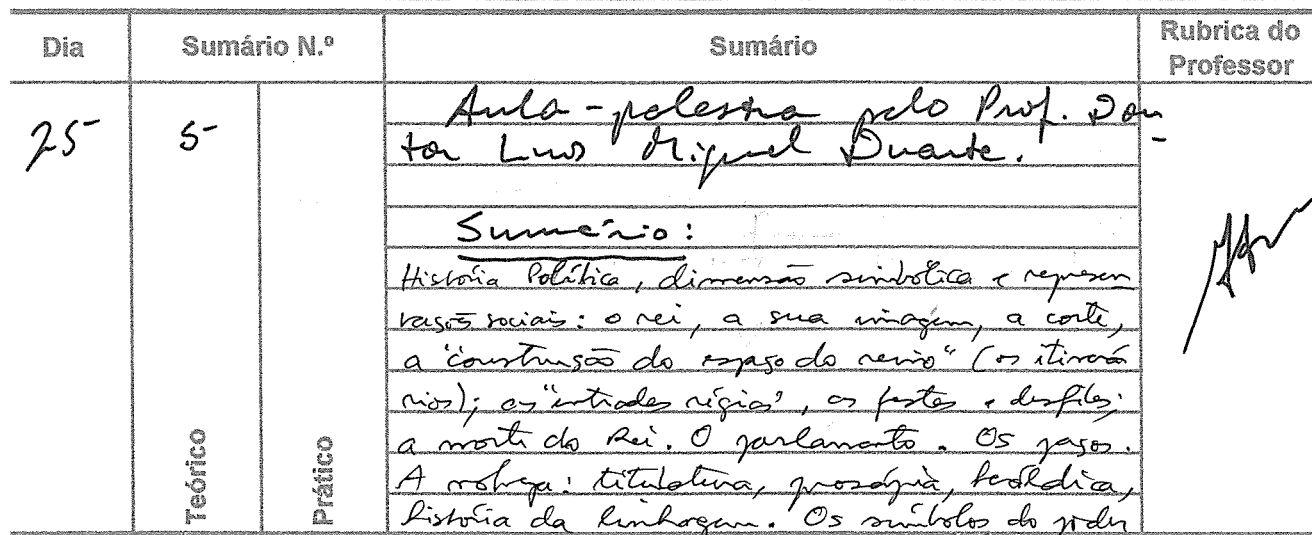 Dia Sumário N.º Sumário Rubrica do Professor
25 5 Aula-palestra pelo Prof. Dou-
tor Luís Miguel Duarte.
Sumário:
História Política, dimensão simbólica e represen
tações sociais: o rei, a sua imagem, a corte,
a "construção do espaço do reino" (os itinerá
rios); as "entradas régias", as festas e desfiles;
a morte do Rei. O parlamento. Os paços.
A nobreza: titulatura, prosápia, heráldica,
história da linhagem. Os símbolos do poder
Teórico
Prático